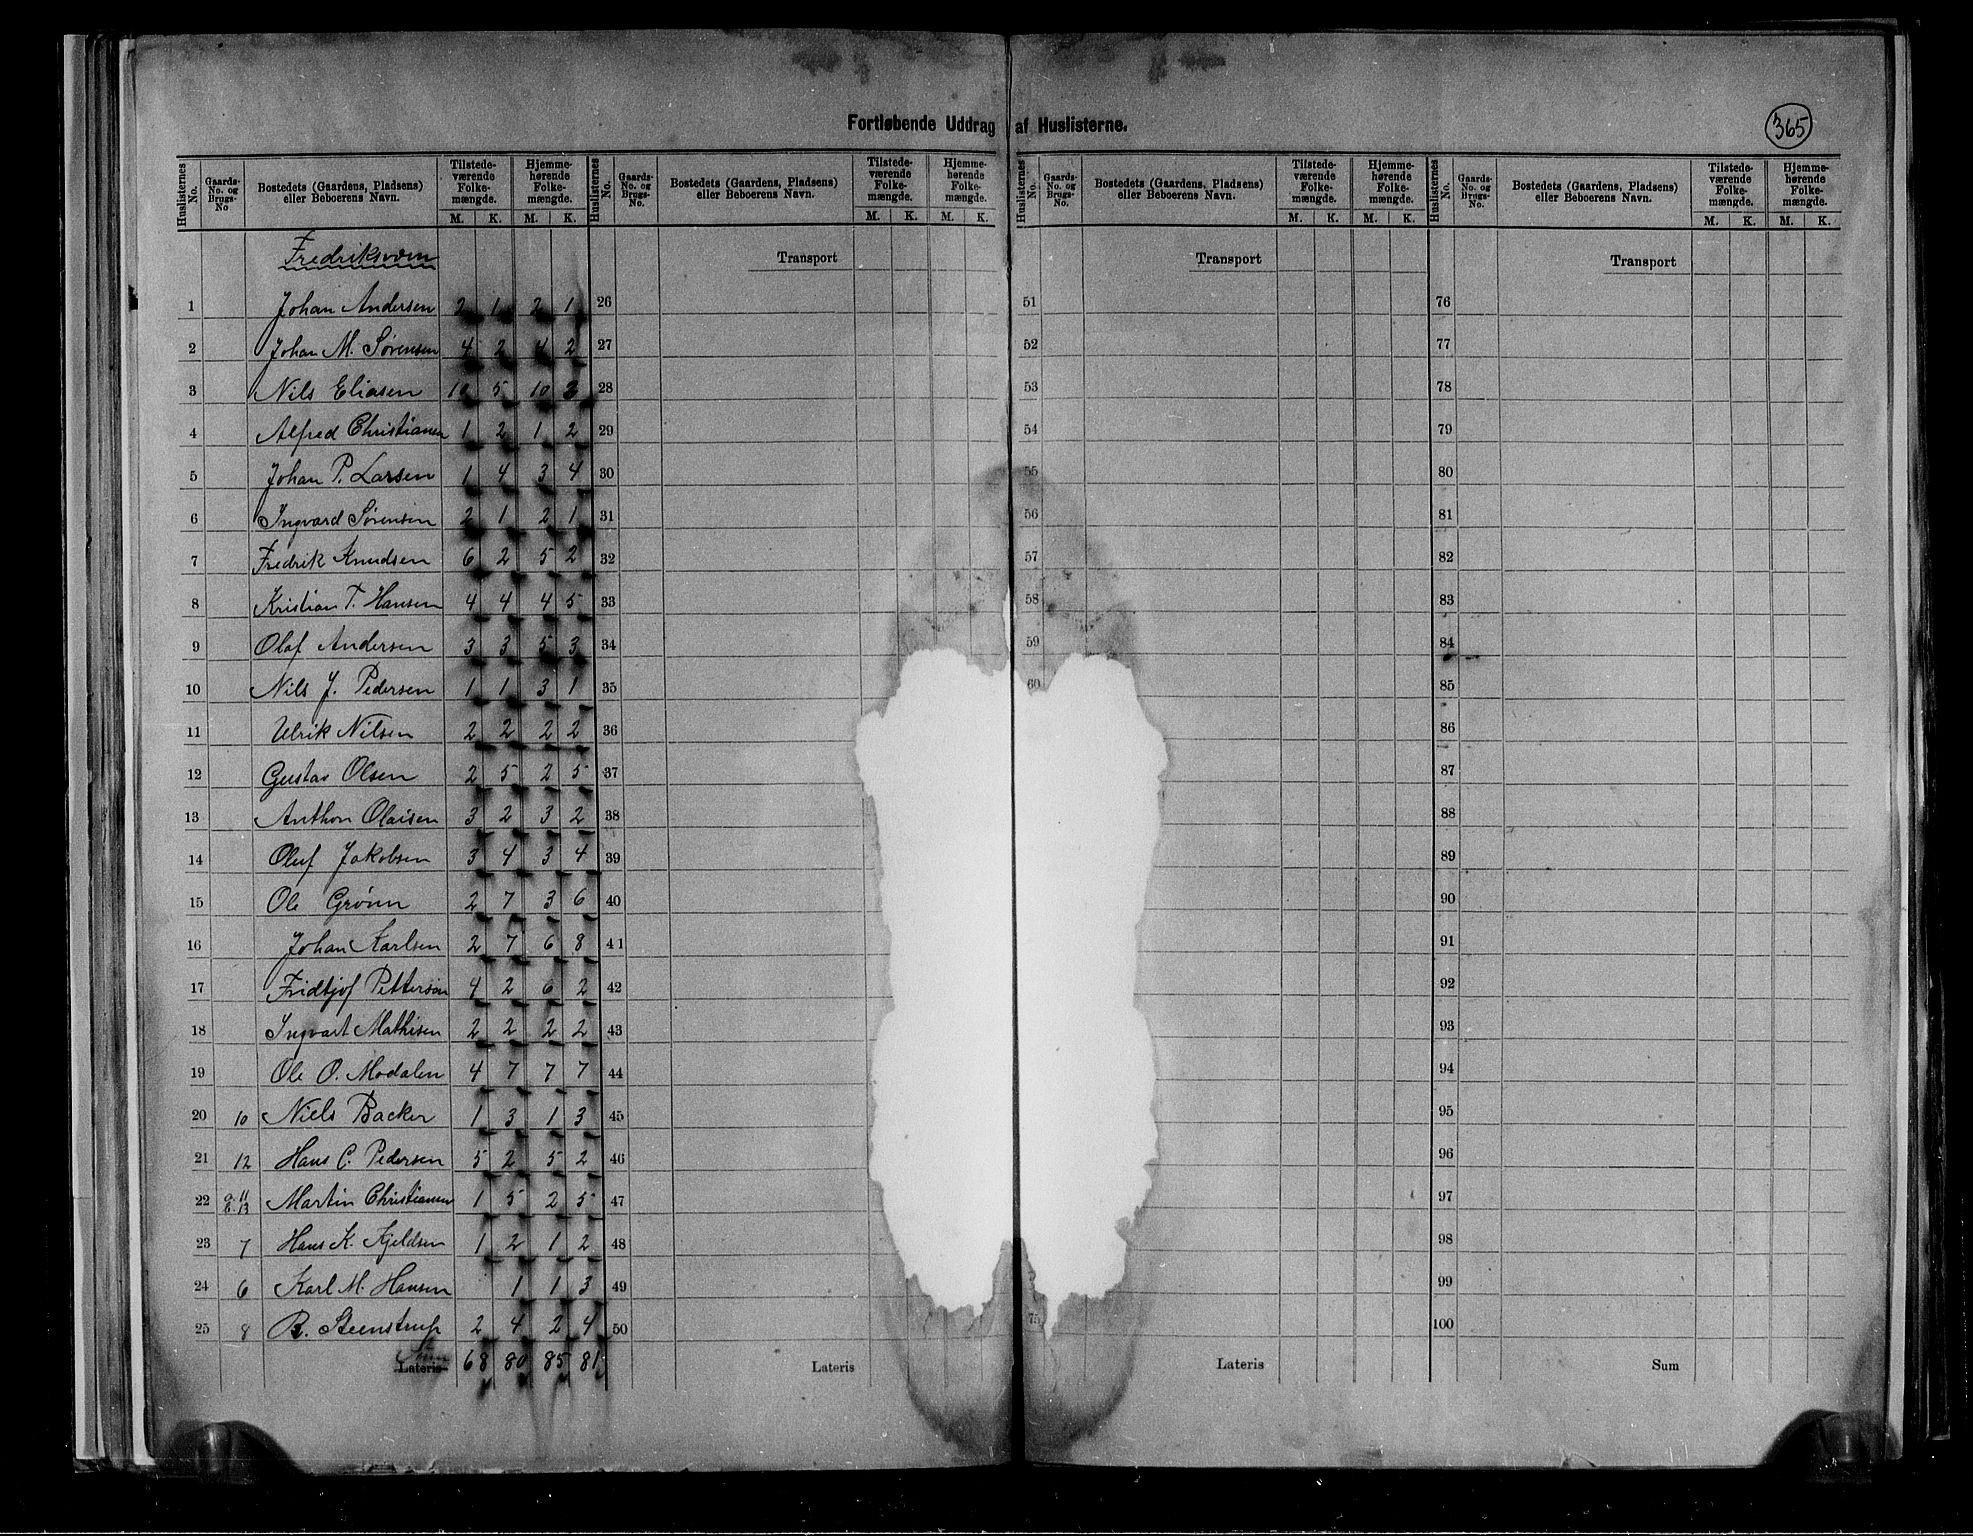 Fortløbende Uddrag af Huslisterne.
365
Huslisternes No. Gaards-No. og Brugs-No Bostedets (Gaardens, Pladsens) eller Beboerens Navn. Tilstedeværende Folkemængde. M. K. Hjemmehørende Folkemængde. M. K.
Fredriksværn
1 Johan Andersen 2 1 2 1
2 Johan M. Sørensen 4 2 4 2
3 Nils Eliasen 10 5 10 2
4 Alfred Christiansen 1 2 1 2
5 Johan P. Larsen 1 4 3 4
6 Ingvard Sørensen 2 1 2 1
7 Fredrik Knudsen 6 2 5 2
8 Kristian T. Hansen 4 4 4 5
9 Olaf Andersen 3 3 5 3
10 Nils J. Pedersen 1 1 3 1
11 Ulrik Nilsen 2 2 2 2
12 Gustav Olsen 2 5 2 5
13 Anthon Olaisen 3 2 3 2
14 Oluf Jakobsen 3 4 3 4
15 Ole Grønn 2 7 3 6
16 Johan Karlsen 2 7 6 8
17 Fridtjof Petterson 4 2 6 2
18 Ingvart Mathisen 2 2 2 2
19 Ole O. Modalen 4 7 7 7
20 10 Niels Backer 1 3 1 3
21 12 Hans C. Pedersen 5 2 5 2
22 9. 11 13 Martin Christiansen 1 5 2 5
23 7 Hans K. Kjeldsen 1 2 1 2
24 6 Karl M. Hansen 1 1 3
25 8 R. Steenstrup 2 4 2 4
Lateris 68 80 85 81
Huslisternes No. Gaards-No. og Brugs-No. Bostedets (Gaardens, Pladsens) eller Beboerens Navn. Tilstedeværende Folkemængde. M. K. Hjemmehørende Folkemængde. M. K.
Transport
26
27
28
29
30
31
32
33
34
35
36
37
38
39
40
41
42
43
44
45
46
47
48
49
50
Lateris
Huslisternes No. Gaards-No. og Brugs-No. Bostedets (Gaardens, Pladsens) eller Beboerens Navn. Tilstedeværende Folkemængde. M. K. Hjemmehørende Folkemængde. M. K.
Transport
51
52
53
54
55
56
57
58
59
60
75
Lateris
Huslisternes No. Gaards-No. og Brugs-No. Bostedets (Gaardens, Pladsens) eller Beboerens Navn. Tilstedeværende Folkemængde. M. K. Hjemmehørende Folkemængde. M. K.
Transport
76
77
78
79
80
81
82
83
84
85
86
87
88
89
90
91
92
93
94
95
96
97
98
99
100
Sum